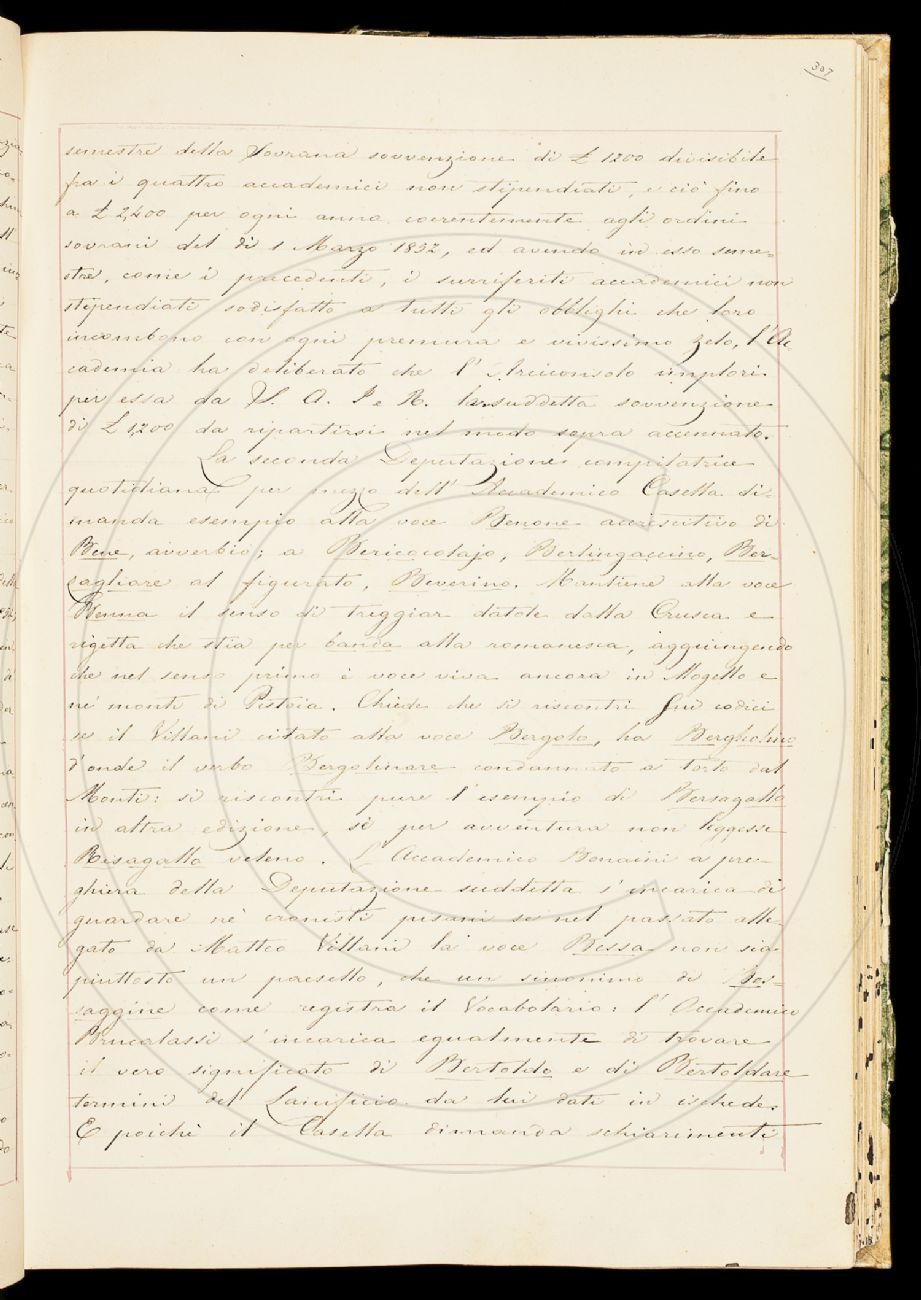 307
semestre della Sovrana sovvenzione di £ 1200 divisibile
fra i quattro accademici non stipendiati, e ciò fino
a £ 2,400 per ogni anno, coerentemente agli ordini
sovrani del dì 1 Marzo 1832, ed avendo in esso seme=
stre, come i precedenti, i surriferiti accademici non
stipendiati sodisfatto a tutti gli obblighi che loro
incombono con ogni premura e vivissimo zelo, l'Ac
cademia ha deliberato che l'Arciconsolo implori
per essa da S. A. I e R. la suddetta sovvenzione
di £ 1,200 da ripartirsi nel modo sopra accennato.
La seconda Deputazione compilatrice
quotidiana per mezzo dell'Accademico Casella di=
manda esempio alla voce Benone accrescitivo di
Bene, avverbio; a Bericocolajo, Berlingaccino, Ber=
sagliare al figurato, Beverino. Mantiene alla voce
Benna il senso di treggia datole dalla Crusca e
rigetta che stia per banda alla romanesca, aggiungendo
che nel senso primo è voce viva ancora in Mugello e
ne' monti di Pistoia. Chiede che si riscontri sui codici
se il Villani citato alla voce Bergolo, ha Bergholino
d'onde il verbo Bergolinare condannato a torto dal
Monti: si riscontri pure l'esempio di Bersagallo
in altra edizione, se per avventura non leggesse
Risagallo veleno. L'Accademico Bonaini a pre=
ghiera della Deputazione suddetta s'incarica di
guardare ne' cronisti pisani se nel passato alle=
gato da Matteo Villani la voce Bessa non sia
piuttosto un paesello, che un sinonimo di Bes=
saggine come registra il Vocabolario: l'Accademico
Brucalassi s'incarica egualmente di trovare
il vero significato di Bertoldo e di Bertoldare
termini del Lanificio da lui dati in ischede.
E poichè il Casella dimanda schiarimenti